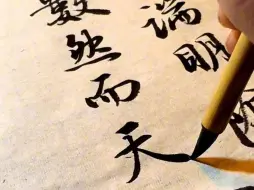 端明
數然而天